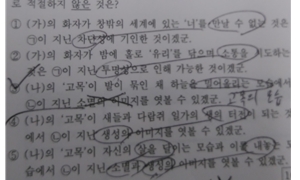 로 적절하지 않은 것은?
① (가)의 화자가 창밖의 세계에 있는 '너'를 만날 수 없는 것은
㉠이 지닌 차단성에 기인한 것이겠군.
② (가)의 화자가 밤에 홀로 '유리'를 닦으며 소통을 시도하는
것은 ㉠이 지닌 투명성으로 인해 가능한 것이겠군.
③ (나)의 '고목'이 발이 묶인 채 하늘을 모습에서
㉡이 지닌 소멸의 이미지를 엿볼 수 있겠군. 고목의 모습
④ (나)의 '고목'이 새들과 다람쥐 일가의 생의 터전이 되는 것
에서 ㉡이 지닌 생성의 이미지를 엿볼 수 있겠군.
⑤ (나)의 '고목'이 자신의 살을 모습과 이를 내놓는 모
습에서 ㉡이 지닌 소멸과 생성의 이미지를 엿볼 수 있겠군.